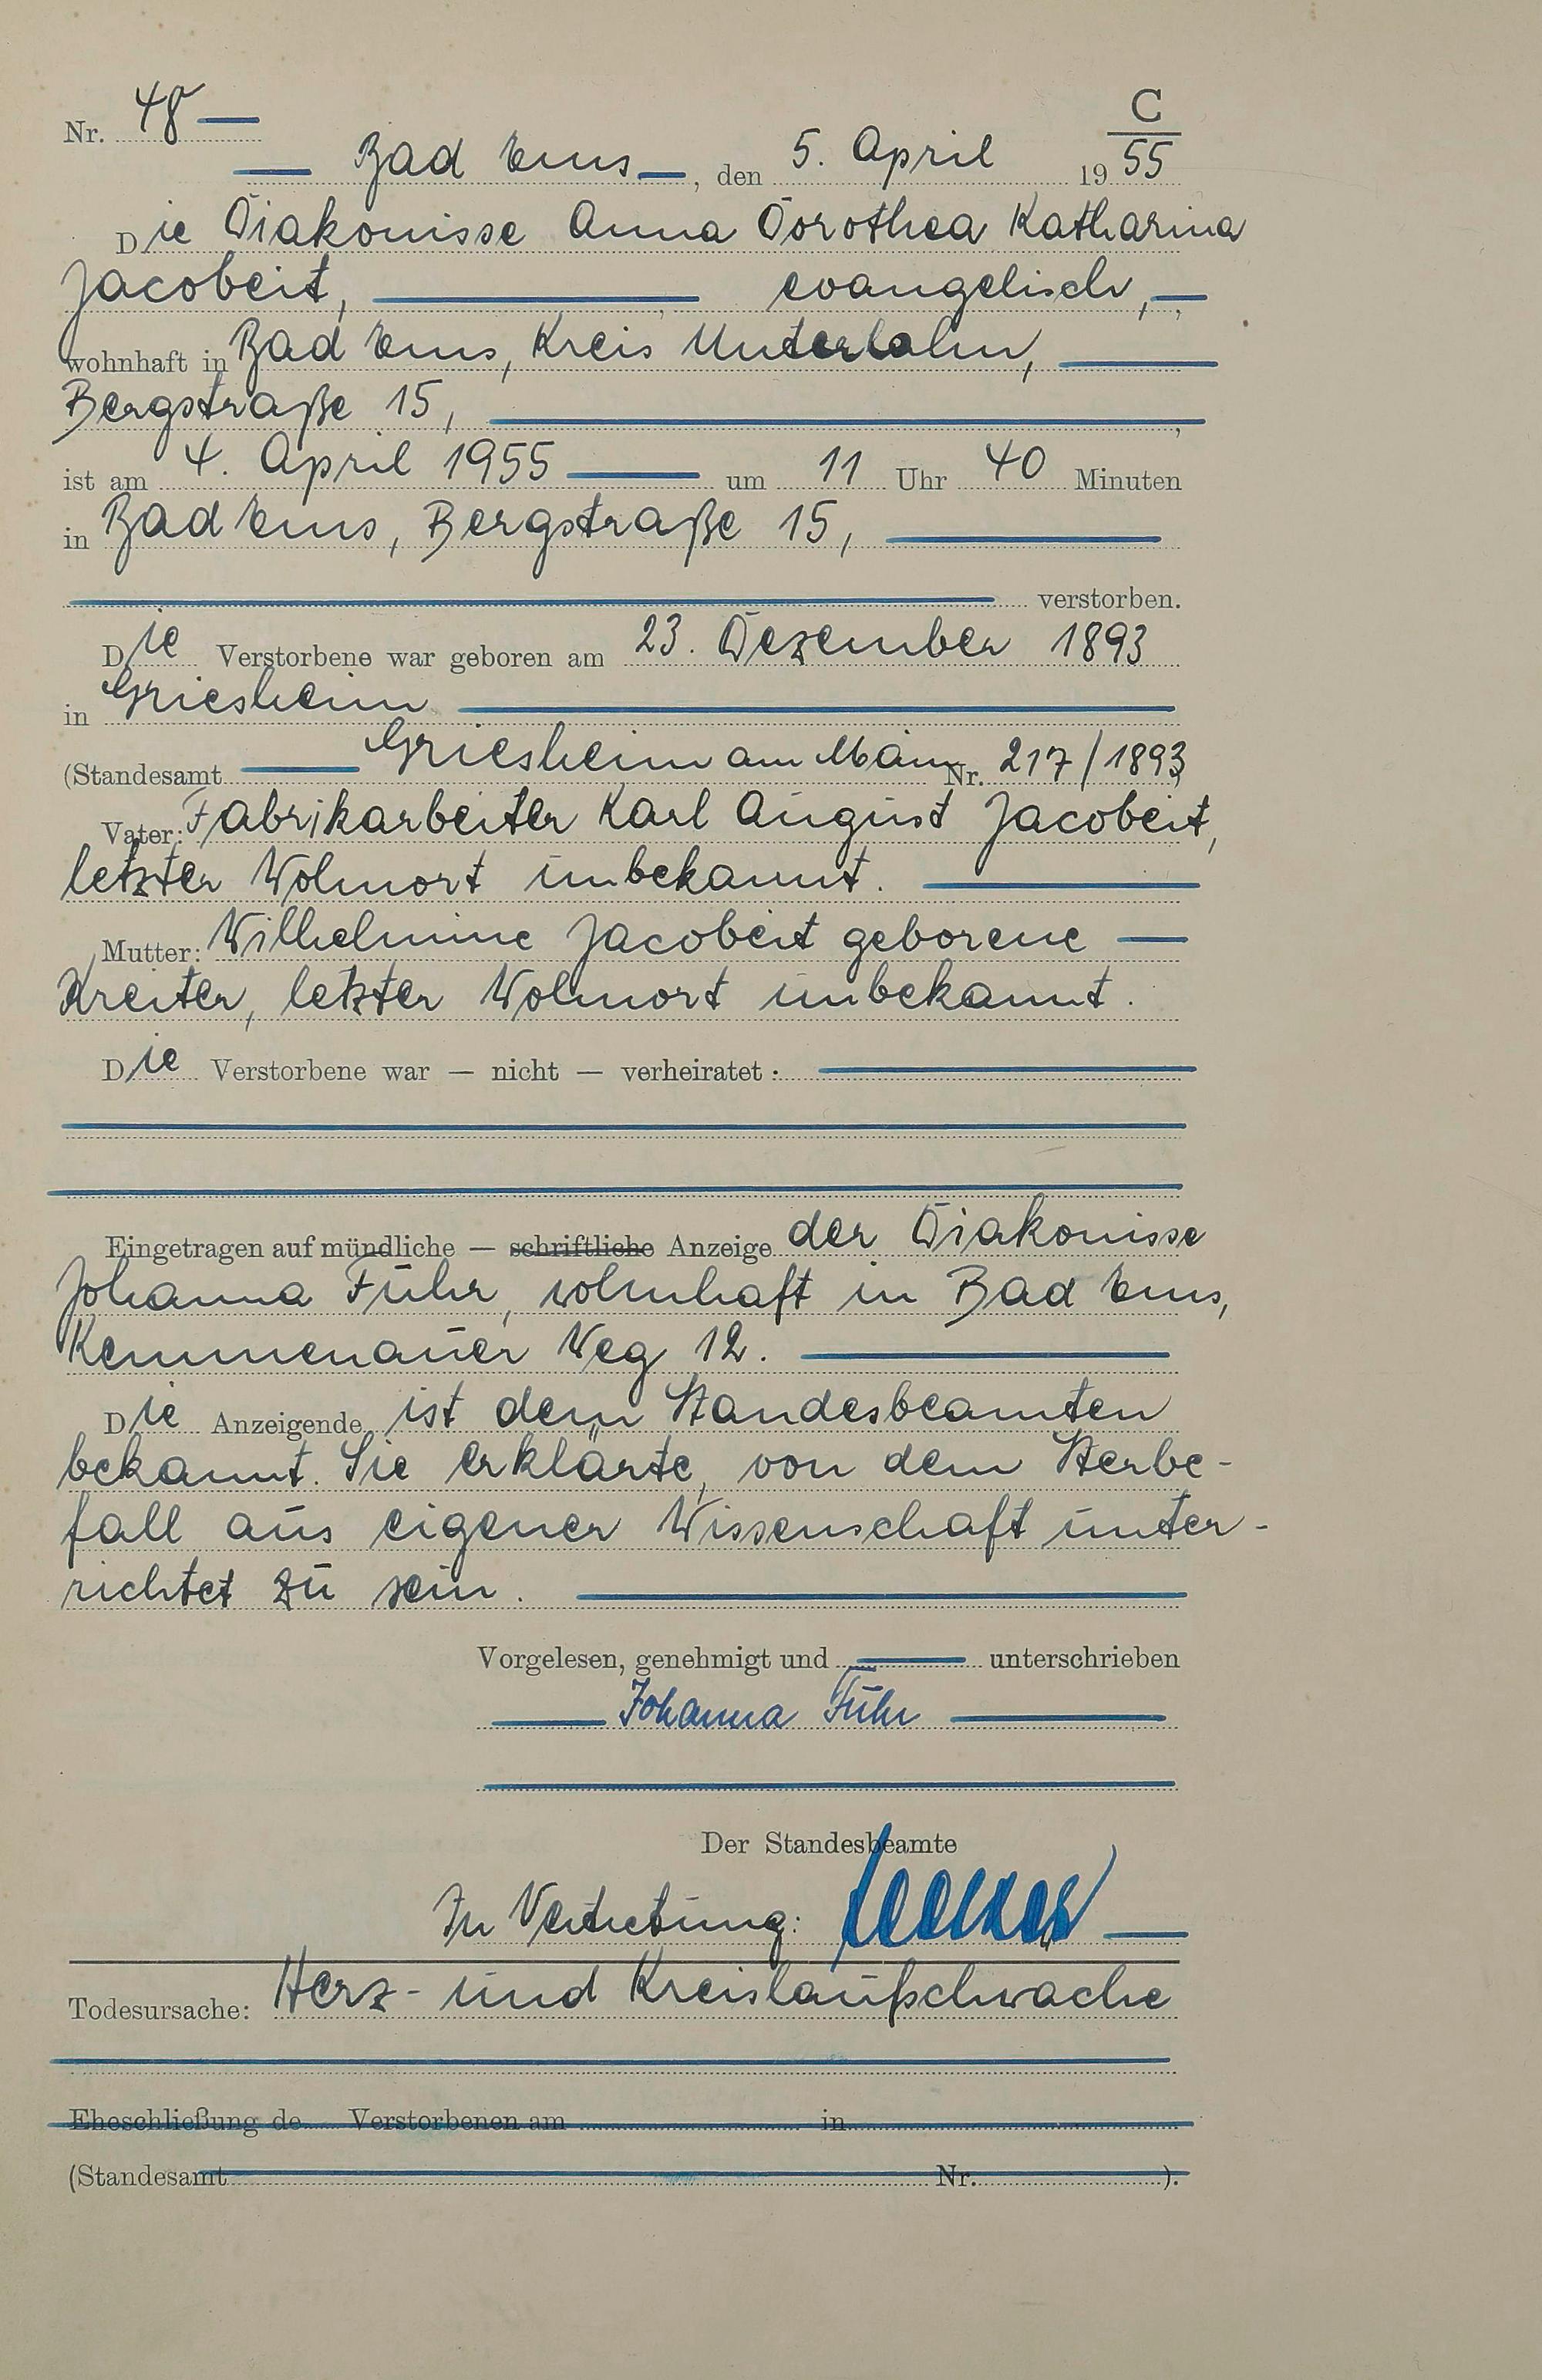 C
Nr. 48
Bad Ems, den 5. April 1955
Die Diakonisse Anna Dorothea Katharina
Jacobeit, evangelisch,
wohnhaft in Bad Ems, Kreis Unterlahn,
Bergstraße 15,
ist am 4. April 1955 um 11 Uhr 40 Minuten
in Bad Ems, Bergstraße 15,
verstorben.
Die Verstorbene war geboren am 23. Dezember 1893
in Griesheim
(Standesamt Griesheim am Main Nr. 217/1893
Vater: Fabrikarbeiter Karl August Jacobeit,
letzter Wohnort unbekannt.
Mutter: Wilhelmine Jacobeit geborene
Kreiter, letzter Wohnort unbekannt.
Die Verstorbene war — nicht — verheiratet:
Eingetragen auf mündliche — schriftliche Anzeige der Diakonisse
Johanna Führ, wohnhaft in Bad Ems,
Kemmenauer Weg 12.
Die Anzeigende ist dem Standesbeamten
bekannt. Sie erklärte, von dem Sterbe-
fall aus eigener Wissenschaft unter-
richtet zu sein.
Vorgelesen, genehmigt und unterschrieben
Johanna Führ
Der Standesbeamte
In Vertretung:
Todesursache: Herz- und Kreislaufschwäche
Eheschließung de Verstorbenen am in
(Standesamt Nr. ).